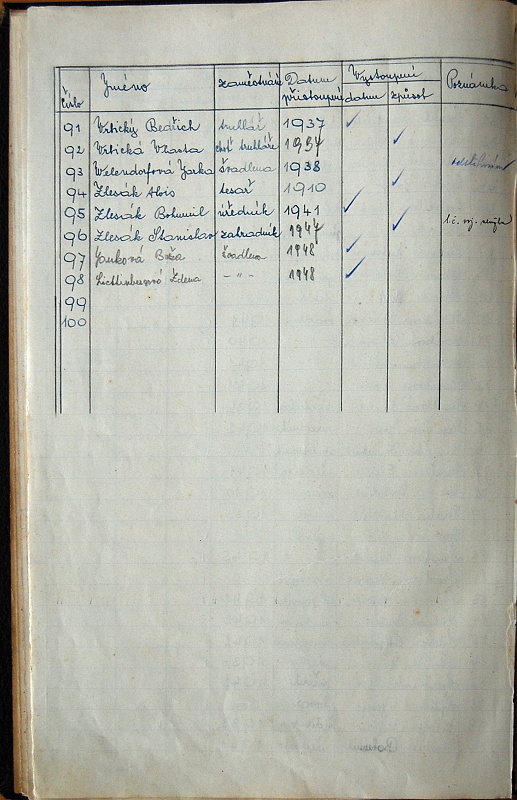 Číslo Jméno zaměstnání Datum přistoupení Vystoupení datum způsob Poznámka
91 Vrbický Bedřich truhlář 1937
92 Vrbická Vlasta choť truhláře 1937
93 Welendorfová Jarka švadlena 1938
94 Zlesák Alois tesař 1910
95 Zlesák Bohumil úředník 1941
96 Zlesák Stanislav zahradník 1947
97 Janková Boža švadlena 1948
98 Zdena -"- 1948
99
100